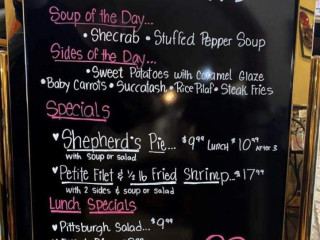 Soup of the Day...
• Shecrab • Stuffed Pepper Soup
Sides of the Day...
• Sweet Potatoes with Caramel Glaze
• Baby Carrots • Succalash • Rice Pilaf • Steak Fries
Specials
♥ Shepherd's Pie... $9.99 Lunch $10.99 After 3
with soup or salad
♥ Petite Filet & ½ lb Fried Shrimp... $17.99
with 2 sides & soup or salad
Lunch Specials
♥ Pittsburgh Salad... $9.99